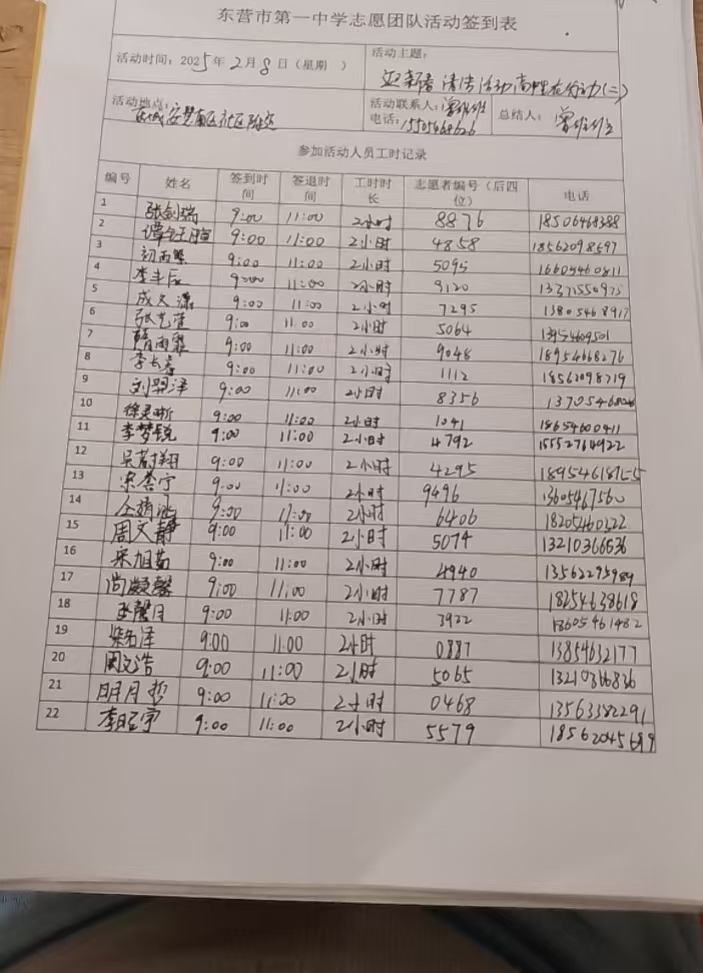 东营市第一中学志愿团队活动签到表
活动时间：2025年2月8日（星期 ） 活动主题：
迎新春 清洁活动 高中生在行动(二)
活动地点： 活动联系人：
电话： 总结人：
参加活动人员工时记录
编号 姓名 签到时间 签退时间 工时时长 志愿者编号（后四位） 电话
1 张剑瑞 9:00 11:00 2小时 8876
2 9:00 11:00 2小时 4858 18562098597
3 初雨霏 9:00 11:00 2小时 5095 16605460811
4 李丰辰 9:00 11:00 2小时 9120
5 成天潇 9:00 11:00 2小时 7295 13805468917
6 张艺萱 9:00 11:00 2小时 5064 13954609501
7 9:00 11:00 2小时 9048 18954668276
8 李长春 9:00 11:00 2小时 1112 18562098719
9 9:00 11:00 2小时 8356
10 徐灵晰 9:00 11:00 2小时 1041 18654600411
11 李梦锐 9:00 11:00 2小时 4792
12 吴蔚翔 9:00 11:00 2小时 4295 18954618755
13 宋荟宁 9:00 11:00 2小时 9496 13605467560
14 9:00 11:00 2小时 6406 18205460322
15 周文静 9:00 11:00 2小时 5074 13210366636
16 宋旭茹 9:00 11:00 2小时 4940 13562295989
17 尚凝馨 9:00 11:00 2小时 7787 18254638618
18 9:00 11:00 2小时 3922 18605461482
19 柴若泽 9:00 11:00 2小时 0887 13854632177
20 周文浩 9:00 11:00 2小时 5065
21 明月哲 9:00 11:00 2小时 0468 13563382291
22 李昭宇 9:00 11:00 2小时 5579